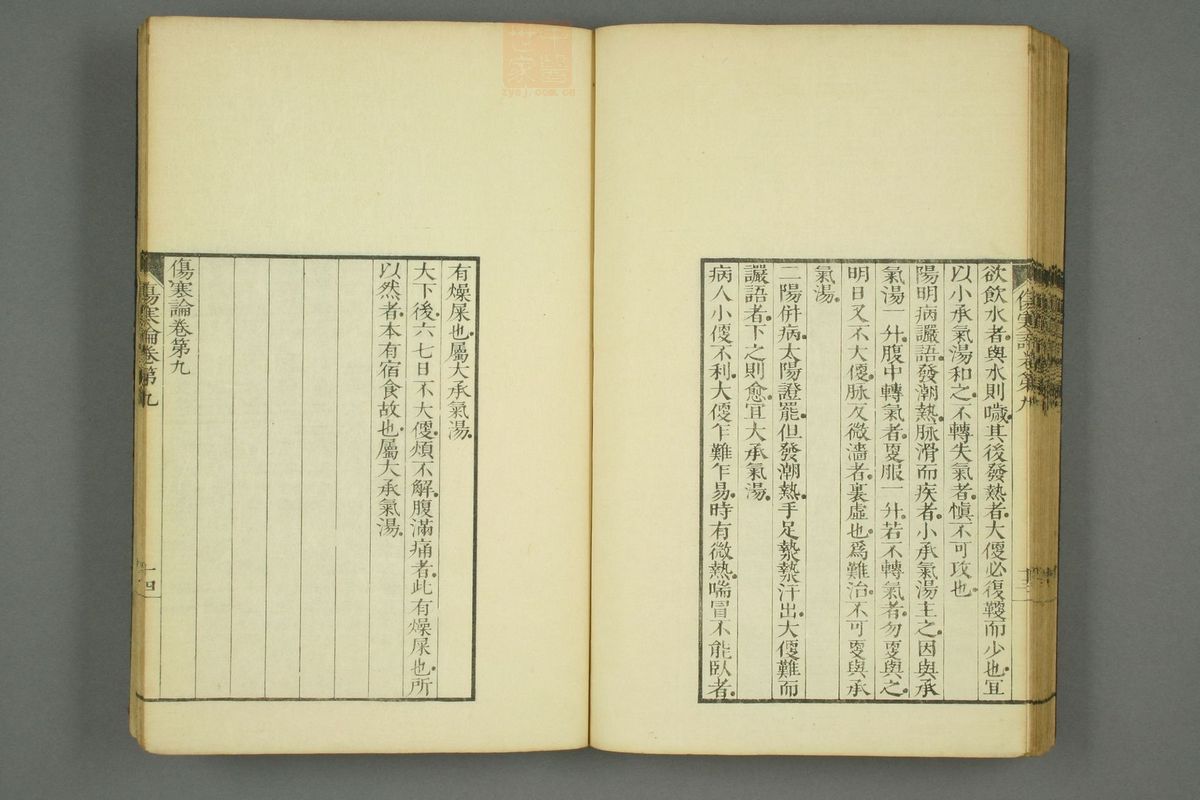 欲飲水者與水則噦其後發熱者大便必復鞕而少也宜
以小承氣湯和之不轉失氣者慎不可攻也
陽明病讝語發潮熱脉滑而疾者小承氣湯主之因與承
氣湯一升腹中轉氣者更服一升若不轉氣者勿更與之
明日又不大便脉反微濇者裏虛也爲難治不可更與承
氣湯
二陽併病太陽證罷但發潮熱手足漐漐汗出大便難而
讝語者下之則愈宜大承氣湯
病人小便不利大便乍難乍易時有微熱喘冒不能臥者
有燥屎也屬大承氣湯
大下後六七日不大便煩不解腹滿痛者此有燥屎也所
以然者本有宿食故也屬大承氣湯
傷寒論卷第九
傷寒論卷第九
十四
zysj.com.cn